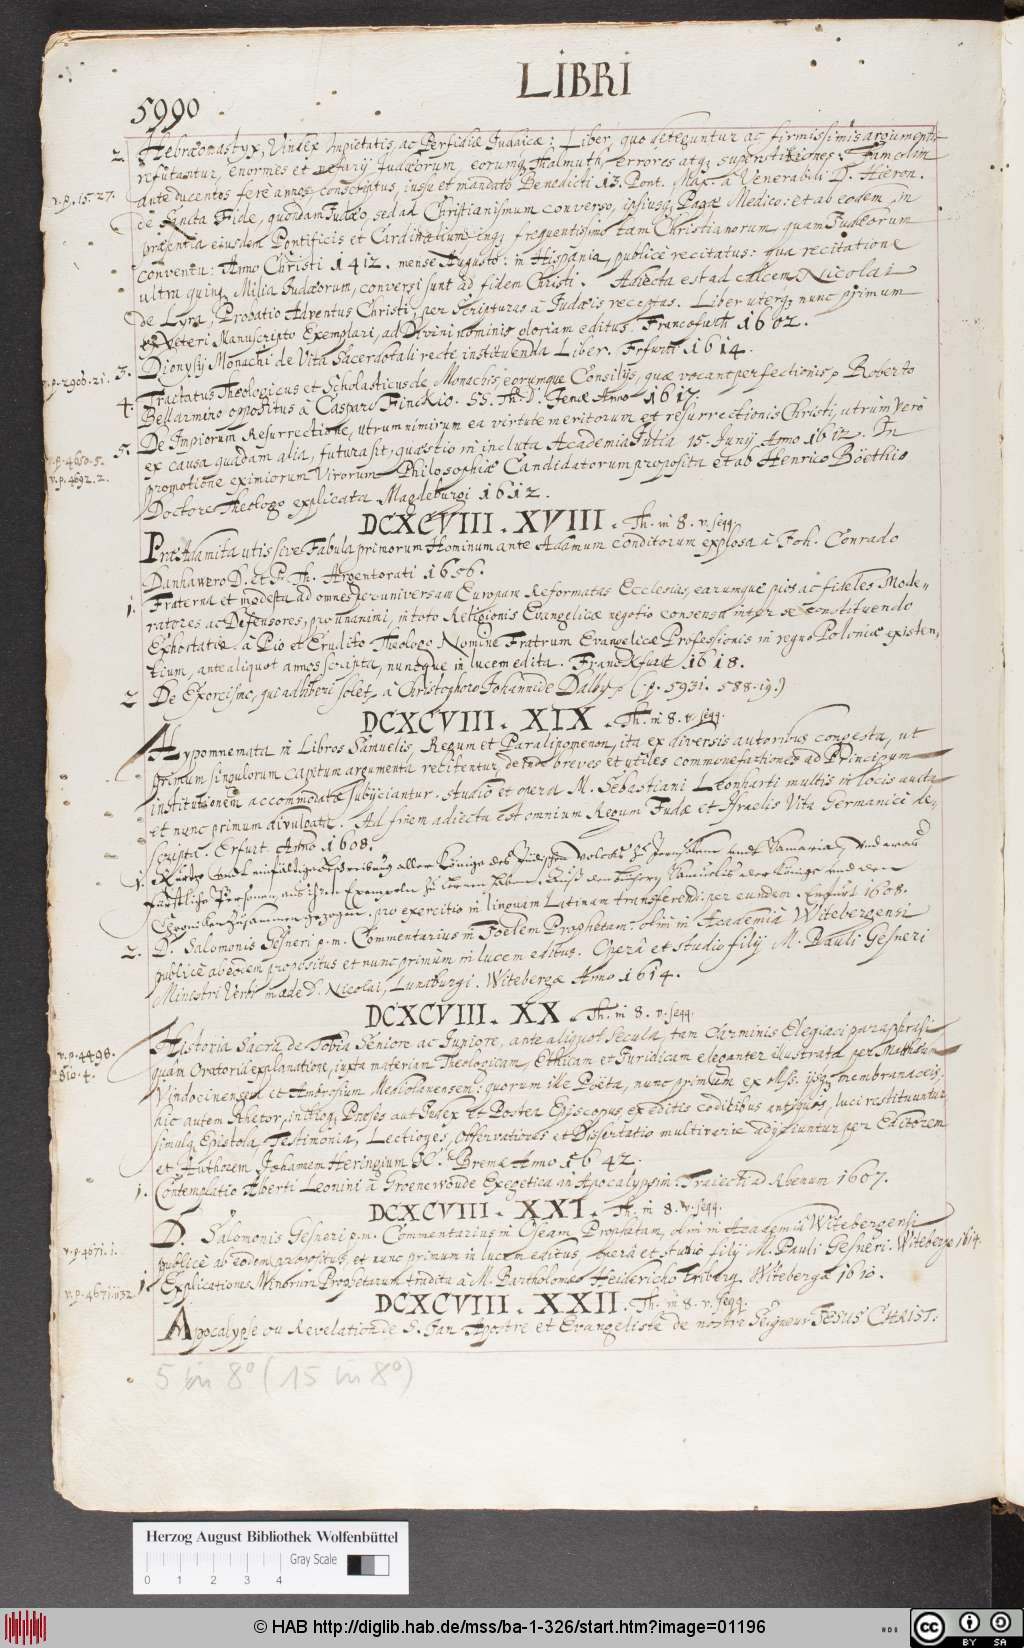 LIBRI
5990
2. Hebræomastyx, Vindex Impietatis, ac Perfidiæ Judaicæ: Liber, quo deteguntur ac firmissimis argumentis
refutantur, enormes et nefarij Judæorum, eorumq; Thalmuth, errores atq; superstitiones: Jam olim
v. p. 15. 27.
ante ducentos ferè annos conscriptus, jussu et mandato Benedicti 13. Pont. Max. à Venerabili D. Hieron.
de Sancta Fide, quondam Judæo, sed ad Christianismum converso, ipsiusq; Papæ Medico: et ab eodem in
præsentia ejusdem Pontificis et Cardinalium, inq; frequentissimo tam Christianorum, quam Judæorum
conventu: Anno Christi 1412. mense Augusto: in Hispania, publicè recitatus: qua recitatione
ultra quinq; Milia Judæorum, conversi sunt ad fidem Christi. Adjecta est ad calcem Nicolai
de Lyra, Probatio Adventus Christi, per Scripturas à Judæis receptas. Liber uterq; nunc primum
ex veteri Manuscripto Exemplari, ad Divini nominis gloriam editus. Francofurti 1602.
3. Dionysij Monachi de Vita Sacerdotali recte instituenda Liber. Erfurti 1614.
v. p. 2908. 21.
4. Tractatus Theologicus et Scholasticus de Monachis, eorumque Consilijs, quæ vocant perfectionis, Roberto
Bellarmino oppositus à Casparo Finckio. SS. Th. D. Jenæ Anno 1617.
5. De Impiorum Resurrectione, utrum nimirum ea virtute meritorum et resurrectionis Christi, utrum vero
v. p. 4650. 5.
ex causa quadam alia, futura sit, quæstio in incluta Academia Julia 15. Junij Anno 1612. In
v. p. 4692. 2.
promotione eximiorum Virorum Philosophiæ Candidatorum proposita et ab Henrico Böethio
Doctore Theologo explicata Magdeburgi 1612.
DCXCVIII. XVIII. Th. in 8. v. seqq.
Præ Adamita utis sive Fabula primorum Hominum ante Adamum conditorum explosa à Joh. Conrado
Danhawero D. et P. Th. Argentorati 1656.
1. Fraterna et modesta ad omnes per universam Europam Reformatas Ecclesias, earumque pios ac fideles Mode-
ratores ac Defensores, pro unanimi, in toto Religionis Evangelicæ negotio consensu inter se constituendo
Exhortatio à Pio et Erudito Theologo Nomine Fratrum Evangelicæ Professionis in regno Poloniæ existen-
tium, ante aliquot annos scripta, nuncque in lucem edita. Francfurt 1618.
2 De Exorcismo, qui adhiberi solet, à Christophoro Johannide Dalby (p. 5931. 588. 19.)
DCXCVIII. XIX. Th. in 8. v. seqq.
Hypomnemata in Libros Samuelis, Regum et Paralipomenon, ita ex diversis autoribus congesta, ut
primum singulorum capitum argumenta recitentur, deinde breves et utiles commonefactiones ad Principum
institutionem accommodatæ subijciantur. studio et opera M. Sebastiani Leonharti multis in locis aucta
et nunc primum divulgata. Ad finem adiecta est omnium Regum Judæ et Israelis Vita Germanicè de-
scripta. Erfurt. Anno 1608.
1. Kurtze und einfältige Beschreibung aller Könige des Jüdischen Volcks zu Jerusalem und Samaria, und was
Fürstliche Personen aus ihren Exempeln zu lernen haben. Auß den Büchern Samuelis der Könige und der
Chronicken zusammen gezogen. pro exercitio in linguam Latinam transferendi: per eundem. Erfurt 1608.
2. D. Salomonis Gesneri p. m. Commentarius in Joelem Prophetam: olim in Academia Witebergensi
publicè ab eodem propositus et nunc primum in lucem editus. Operâ et studio filij M. Pauli Gesneri
Ministri Verbi in æde D. Nicolai, Luneburgi. Witebergæ Anno 1614.
DCXCVIII. XX. Th. in 8. v. seqq.
v. p. 4498.
810. 4.
Historia Sacra de Tobia Seniore ac Juniore, ante aliquot secula, tam Carminis Elegiaci paraphrasi
quam Oratoria explanatione, juxta materiam Theologicam, Ethicam et Juridicam eleganter illustrata per Matthæum
Vindocinensem et Ambrosium Mediolanensem: quorum ille Poëta, nunc primum ex Mss. ijsq; membranaceis,
hic autem Rhetor, inthiog; Preses aut Judex et Postea Episcopus, ex editis codicibus antiquis, luci restituuntur
simulq; Epistola, Testimonia, Lectiones, Observationes et Dissertatio multivaria adijciuntur per Editorem
et Authorem Johannem Heringium JC. Bremæ Anno 1642.
1. Contemplatio Alberti Leonini à Groenewoude Exegetica in Apocalypsin. Trajecti ad Rhenum 1607.
DCXCVIII. XXI. Th. in 8. v. seqq.
v. p. 4671. 1.
D. Salomonis Gesneri p. m. Commentarius in Oseam Prophetam, olim in Academia Witebergensi
publicè ab eodem propositus, et nunc primum in lucem editus, opera et studio filij M. Pauli Gesneri. Witebergæ 1614.
v. p. 4671. 1132.
1 Explicationes Minorum Prophetarum tradita à M. Bartholomeo Heiderichio Friberg. Witebergæ 1610.
DCXCVIII. XXII. Th. in 8. v. seqq.
Apocalypse ou Revelation de S. Jan Apostre et Evangeliste de nostre Seigneur JESUS CHRIST.
5 in 8° (15 in 8°)
Herzog August Bibliothek Wolfenbüttel
Gray Scale
0 1 2 3 4
© HAB http://diglib.hab.de/mss/ba-1-326/start.htm?image=01196
cc BY SA